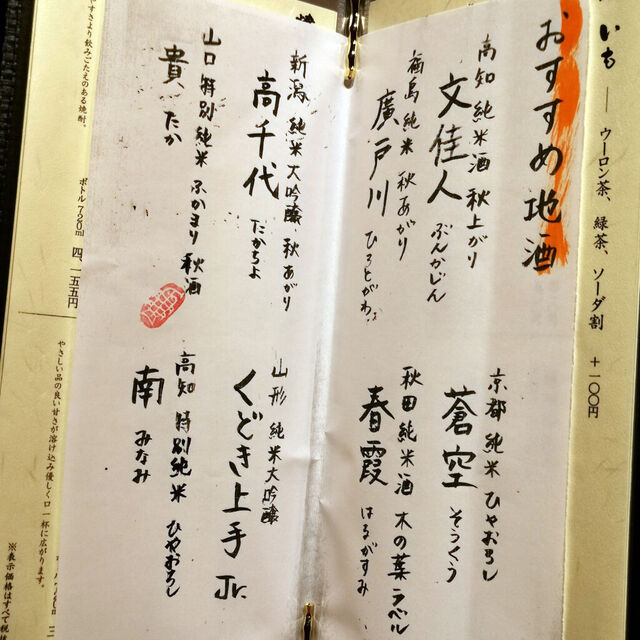 いも — ウーロン茶、緑茶、ソーダ割 +一〇〇円
おすすめ地酒
高知 純米酒 秋上がり
文佳人 ぶんかじん
福島 純米 秋あがり
廣戸川 ひろとがわ
京都 純米 ひやおろし
蒼空 そうくう
秋田 純米酒 木の葉ラベル
春霞 はるがすみ
新潟 純米大吟醸 秋あがり
高千代 たかちよ
山口 特別純米 ふかまり 秋酒
貴 たか
山形 純米大吟醸
くどき上手 Jr.
高知 特別純米 ひやおろし
南 みなみ
やすさより飲みごたえのある焼酎。
ボトル 720ml 四、一五五円
やさしい品の良い甘さが溶け込み優しく口一杯に広がります。
※表示価格はすべて税